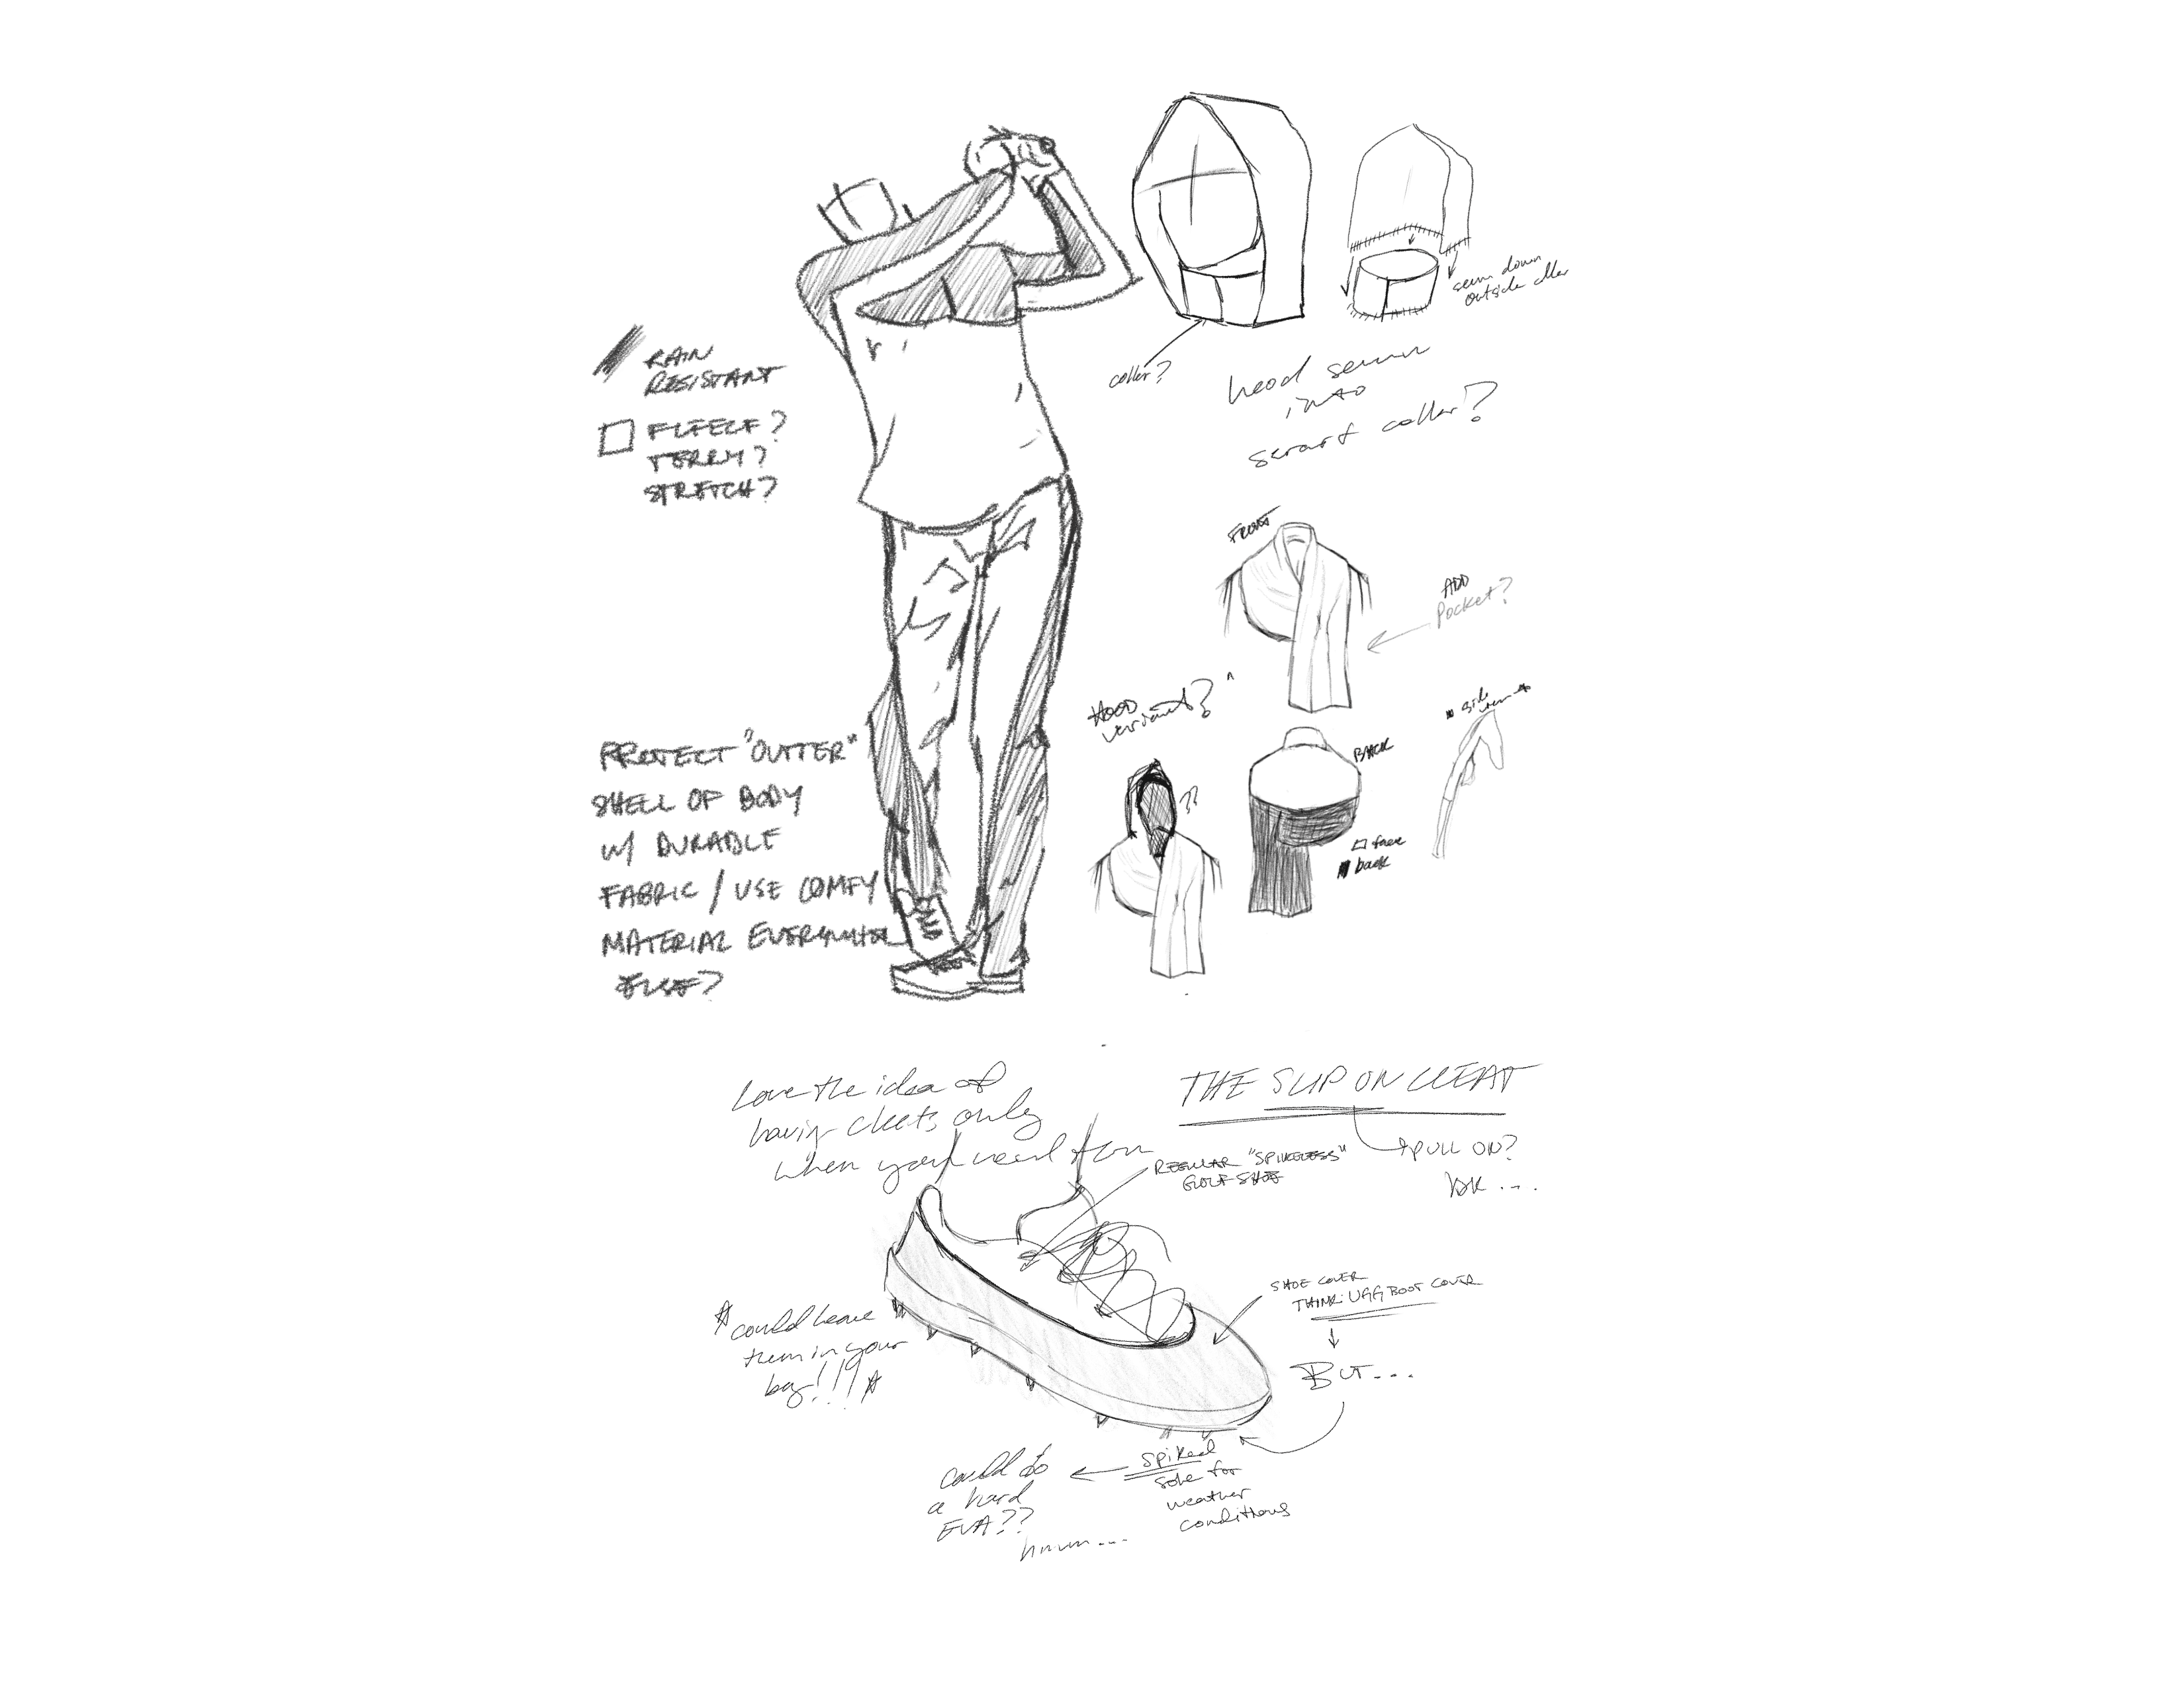 RAIN
RESISTANT
FLEECE?
TERRY?
STRETCH?
PROTECT "OUTTER"
SHELL OF BODY
W/ DURABLE
FABRIC / USE COMFY
MATERIAL EVERYWHERE
ELSE?
collar?
sewn down
outside
hood sewn
into
scarf collar?
FRONT
ADD
Pocket?
HOOD
variant?
??
BACK
side
view
face
back
Love the idea of
having cleets only
when you need them
THE SLIP ON CLEAT
PULL ON?
IDK...
REGULAR "SPIKELESS"
GOLF SHOE
SHOE COVER
THINK: UGG BOOT COVER
BUT...
could leave
them in your
bag!!!
spiked
sole for
weather
conditions
could do
a hard
EVA??
hmm...